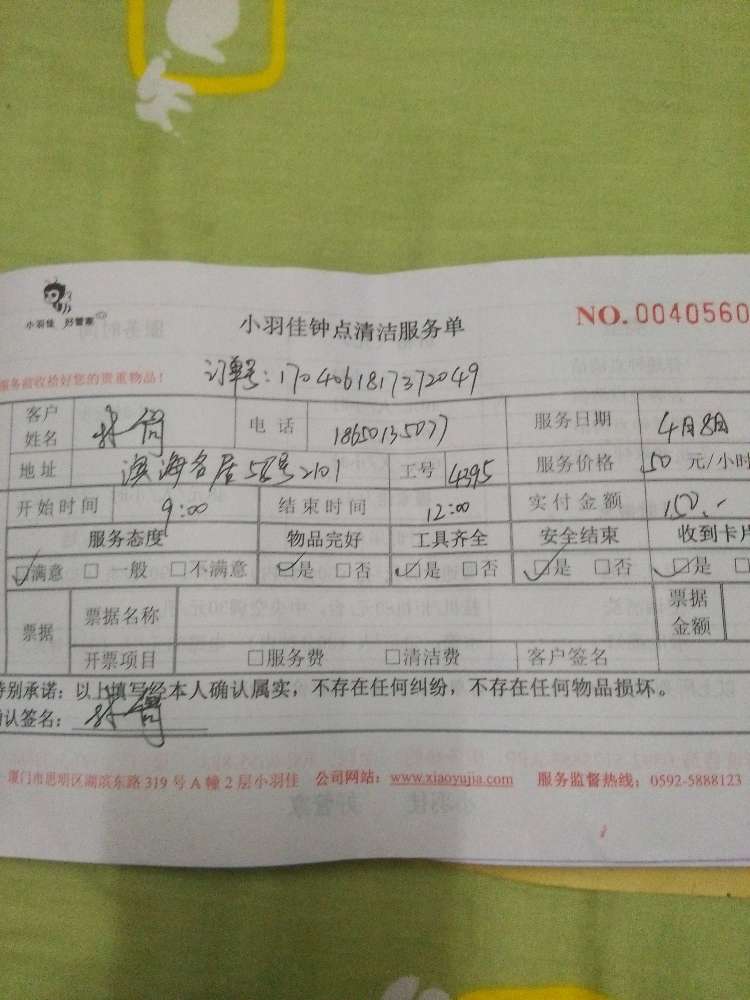 小羽佳 好管家
小羽佳钟点清洁服务单
NO. 0040560
服务前收拾好您的贵重物品!
订单号:1704061817372049
客户姓名 电话 18650135077 服务日期 4月8日
地址 滨海名居58号2101 工号 4395 服务价格 50 元/小时
开始时间 9:00 结束时间 12:00 实付金额 150.-
服务态度 物品完好 工具齐全 安全结束 收到卡片
☑满意 □一般 □不满意 ☑是 □否 ☑是 □否 ☑是 □否 ☑是 □
票据 票据名称 票据金额
开票项目 □服务费 □清洁费 客户签名
特别承诺:以上填写经本人确认属实,不存在任何纠纷,不存在任何物品损坏。
确认签名:
厦门市思明区湖滨东路 319 号 A 幢 2 层小羽佳 公司网站:www.xiaoyujia.com 服务监督热线:0592-5888123